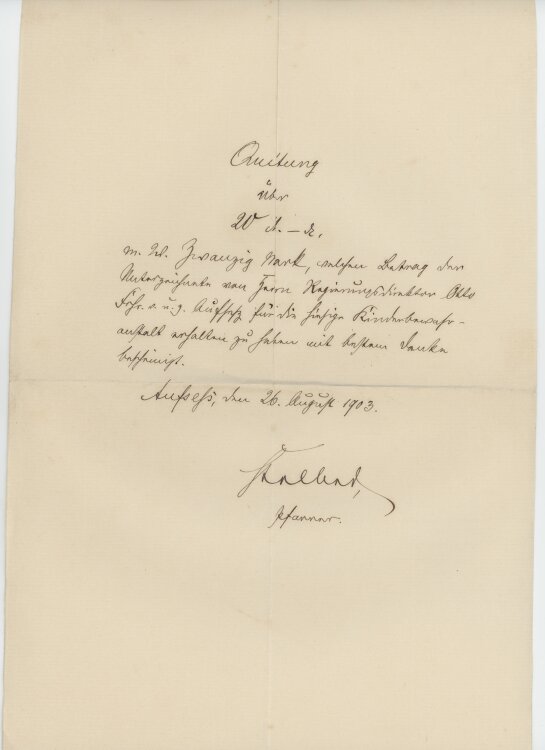 Quitung
über
20 M. – d.
m. W. Zwanzig Mark, welchen Betrag der
Unterzeichnete von Herrn Regierungsdirektor Otto
Frhr. v. u. z. Aufseß für die hiesige Kinderbewahr-
anstalt erhalten zu haben mit bestem Danke
bescheinigt.
Aufseß, den 26. August 1903.
Pfarrer.